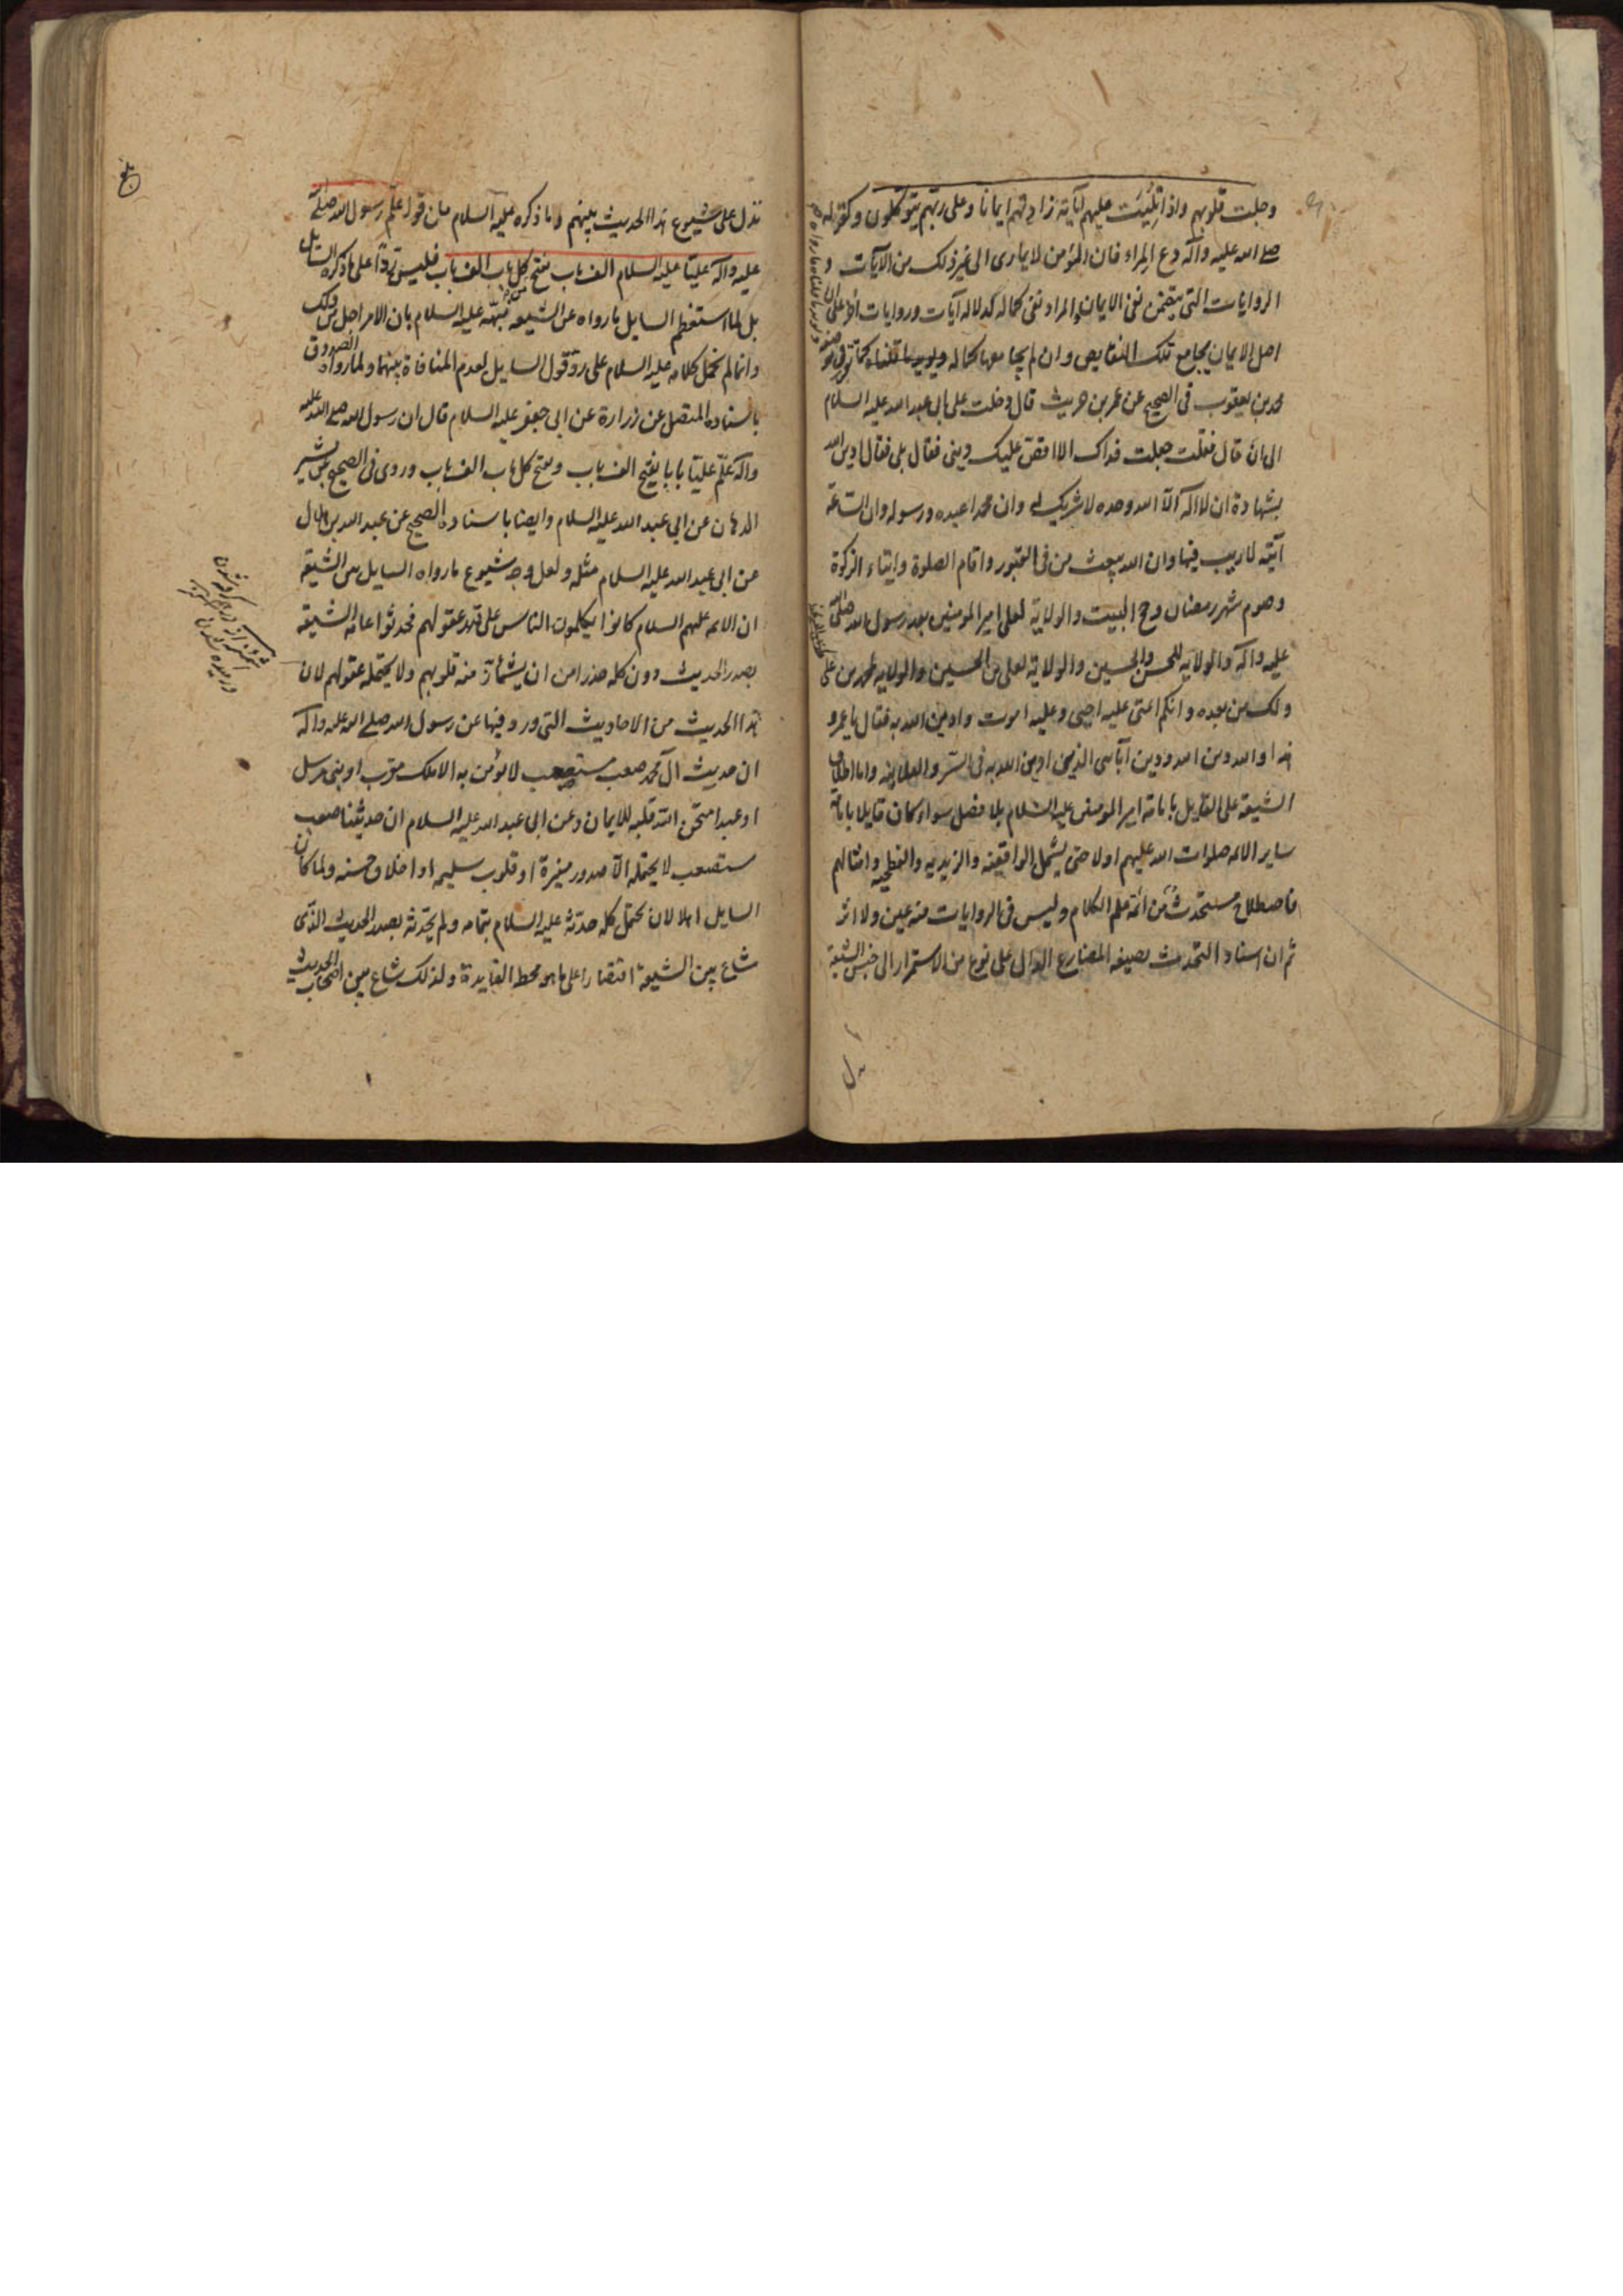 وجلت قلوبهم واذا تليت عليهم آياته زادتهم ايمانا وعلى ربهم يتوكلون وكقوله
صلى الله عليه وآله دع المراء فان المؤمن لا يمارى الى غير ذلك من الآيات و
الروايات التى يتضمن نفى الايمان والمراد نفى كماله لدلاله آيات وروايات اخر على ان
اصل الايمان يجامع تلك النقايص وان لم يجامعها كماله
محمد بن يعقوب فى الصحيح عن عمرو بن حريث قال دخلت على ابى عبد الله عليه السلام
الى ان قال فقلت جعلت فداك الا اقص عليك دينى فقال بلى فقلت ادين الله
بشهادة ان لا اله الا الله وحده لا شريك له وان محمدا عبده ورسوله وان الساعة
آتية لا ريب فيها وان الله يبعث من فى القبور واقام الصلوة وايتاء الزكوة
وصوم شهر رمضان وحج البيت والولاية لعلى امير المومنين بعد رسول الله صلى الله
عليه وآله والولايه للحسن والحسين والولاية لعلى بن الحسين والولايه لمحمد بن على
ولك من بعده وانكم ائمتى عليه احيى وعليه اموت وادين الله به فقال يا عمرو
هذا والله دين الله ودين آبائى الذين ادين الله به فى السر والعلانيه واما اطلاق
الشيعة على القايل بامامة امير المومنين عليه السلام بلا فصل سواء كان قايلا بامامة
ساير الائمه صلوات الله عليهم اولا حتى يشمل الواقفيه والزيديه والفطحيه وامثالهم
فاصطلاح مستحدث من ائمة علم الكلام وليس فى الروايات منه عين ولا اثر
ثم ان اسناد التحديث بصيغه المضارع الدال على نوع من الاستمرار الى جنس الشيعة
تدل على شيوع هذا الحديث بينهم وما ذكره عليه السلام من قوله علم رسول الله صلى الله
عليه وآله عليا عليه السلام الف باب يفتح كل باب الف باب فليس ردا على ما ذكره السايل
بل لما استعظم السايل ما رواه عن الشيعه نبهه عليه السلام بان الامر اجل من ذلك
وانما لم نحمل كلامه عليه السلام على رد قول السايل لعدم المنافاة بينهما ولما رواه الصدوق
باسناده المتصل عن زرارة عن ابى جعفر عليه السلام قال ان رسول الله صلى الله عليه
وآله علم عليا بابا يفتح الف باب ويفتح كل باب الف باب وروى فى الصحيح عن بشير
الدهان عن ابى عبد الله عليه السلام وايضا باسناده الصحيح عن عبد الله بن هلال
عن ابى عبد الله عليه السلام مثله ولعل وجه شيوع ما رواه السايل بين الشيعة
ان الائمه عليهم السلام كانوا يكلمون الناس على قدر عقولهم فحدثوا عامه الشيعه
بصدر الحديث دون كله حذرا من ان يشمأز منه قلوبهم ولا يحتمله عقولهم لان
هذا الحديث من الاحاديث التى ورد فيها عن رسول الله صلى الله عليه وآله
ان حديث آل محمد صعب مستصعب لا يؤمن به الا ملك مقرب او نبى مرسل
او عبد امتحن الله قلبه للايمان وعن ابى عبد الله عليه السلام ان حديثنا صعب
مستصعب لا يحتمله الا صدور منيرة او قلوب سليمه او اخلاق حسنه ولما كان
السايل اهلا لان يحتمل كله حدثه عليه السلام بتمامه ولم يحدثه بصدر الحديث الذى
شاع بين الشيعة اقتصارا على ما هو محط الفايدة ولذلك شاع بين اصحاب الحديث